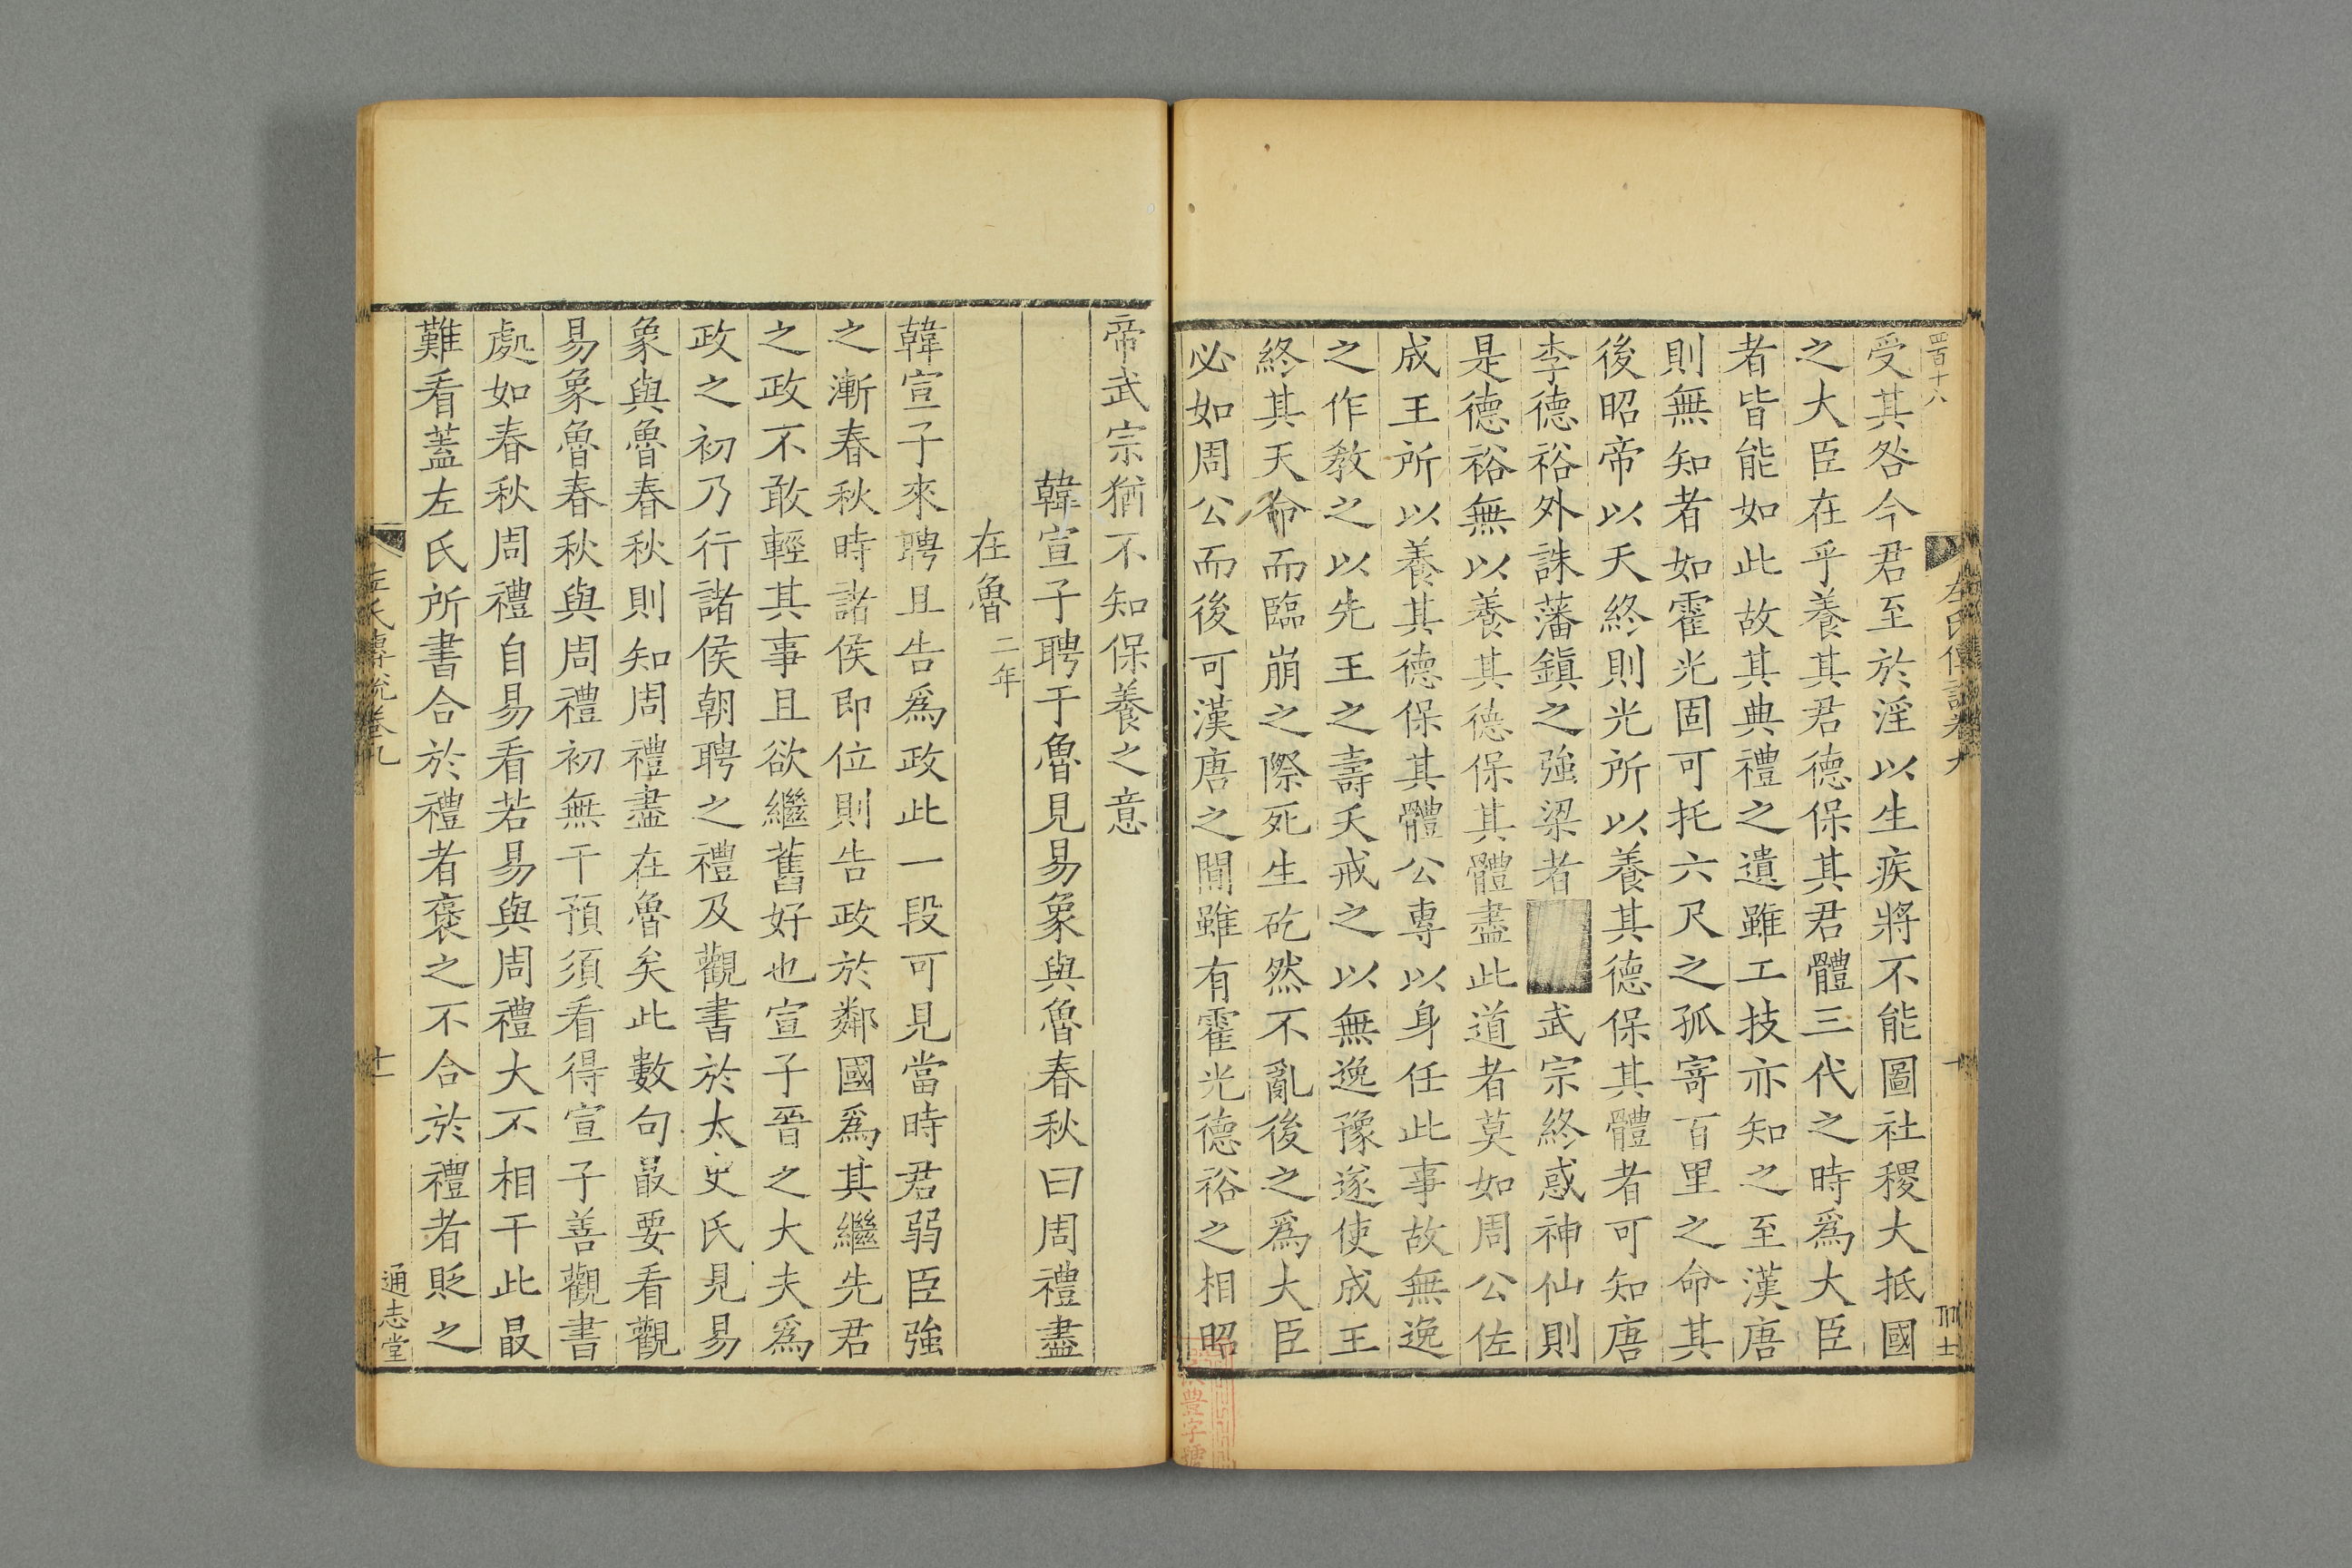 四百十八
受其咎今君至於淫以生疾將不能圖社稷大抵國
之大臣在乎養其君德保其君體三代之時爲大臣
者皆能如此故其典禮之遺雖工技亦知之至漢唐
則無知者如霍光固可托六尺之孤寄百里之命其
後昭帝以天終則光所以養其德保其體者可知唐
李德裕外誅藩鎮之強梁者武宗終惑神仙則
是德裕無以養其德保其體盡此道者莫如周公佐
成王所以養其德保其體公專以身任此事故無逸
之作教之以先王之壽夭戒之以無逸豫遂使成王
終其天命而臨崩之際死生矻然不亂後之爲大臣
必如周公而後可漢唐之間雖有霍光德裕之相昭
帝武宗猶不知保養之意
韓宣子聘于魯見易象與魯春秋曰周禮盡
在魯二年
韓宣子來聘且告爲政此一段可見當時君弱臣強
之漸春秋時諸侯即位則告政於鄰國爲其繼先君
之政不敢輕其事且欲繼舊好也宣子晉之大夫爲
政之初乃行諸侯朝聘之禮及觀書於太史氏見易
象與魯春秋則知周禮盡在魯矣此數句最要看觀
易象魯春秋與周禮初無干預須看得宣子善觀書
處如春秋周禮自易看若易與周禮大不相干此最
難看蓋左氏所書合於禮者褒之不合於禮者貶之
左氏傳說卷九
十一
通志堂